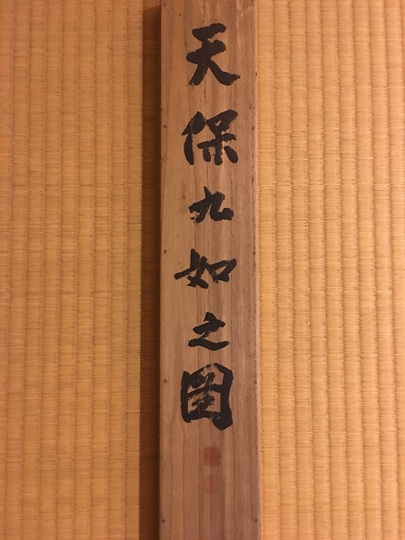 天保九如之圖